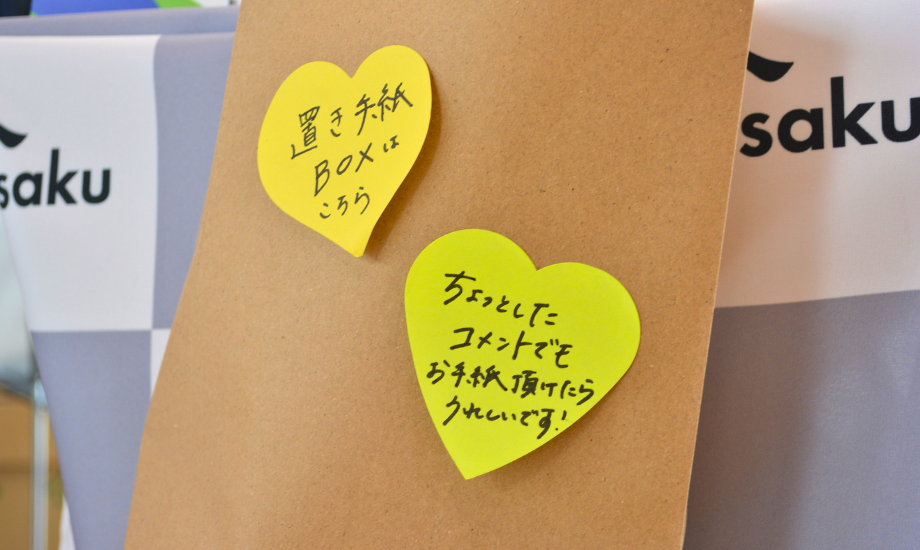 置き手紙
BOXは
こちら
ちょっとした
コメントでも
お手紙頂けたら
うれしいです!
saku
saku